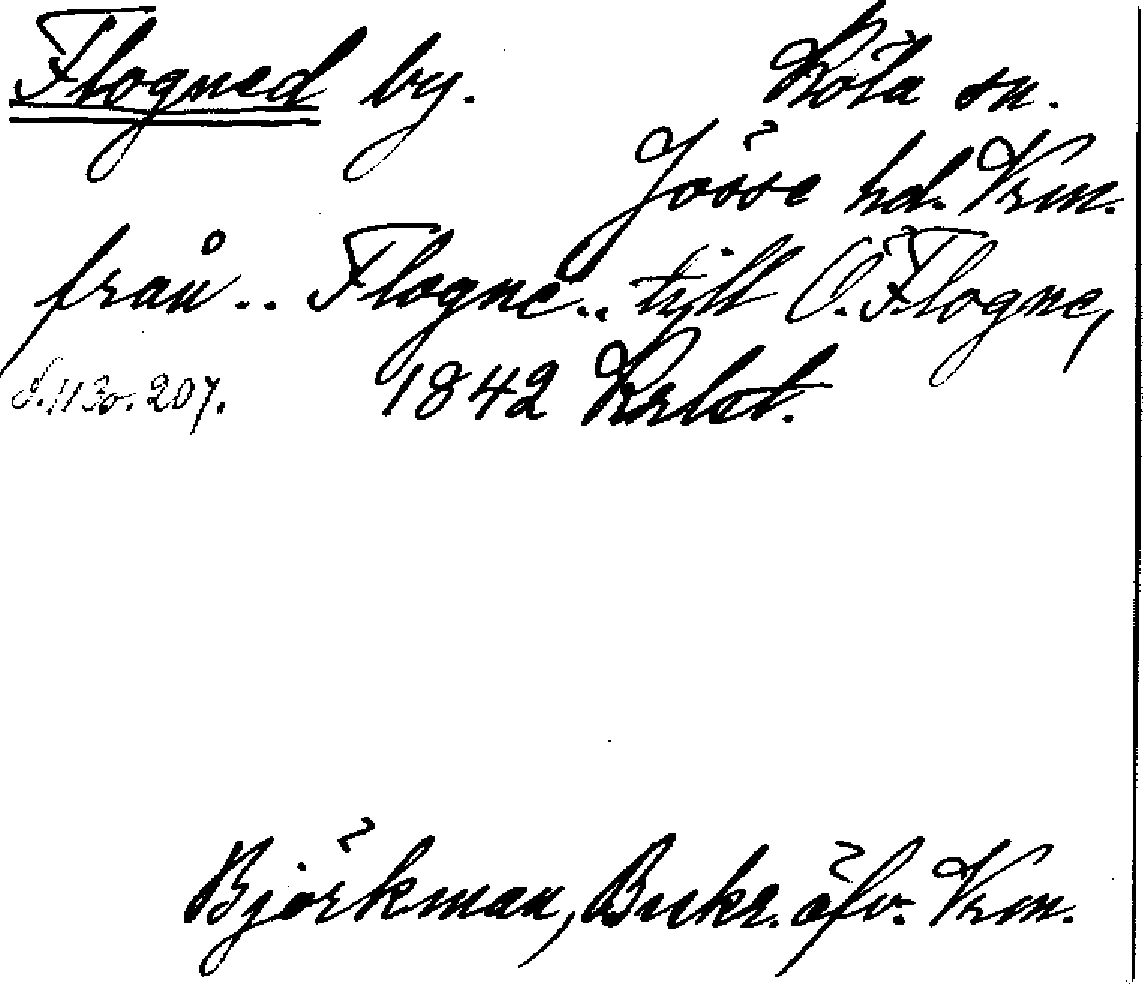 Flogned by. Köla sn.
Jösse hd. Vrm.
från.. Flogne.. till Ö. Flogne,
d. 11 30. 207. 1842 Karlst.
Björkman, Beskr. öfv. Vrm.